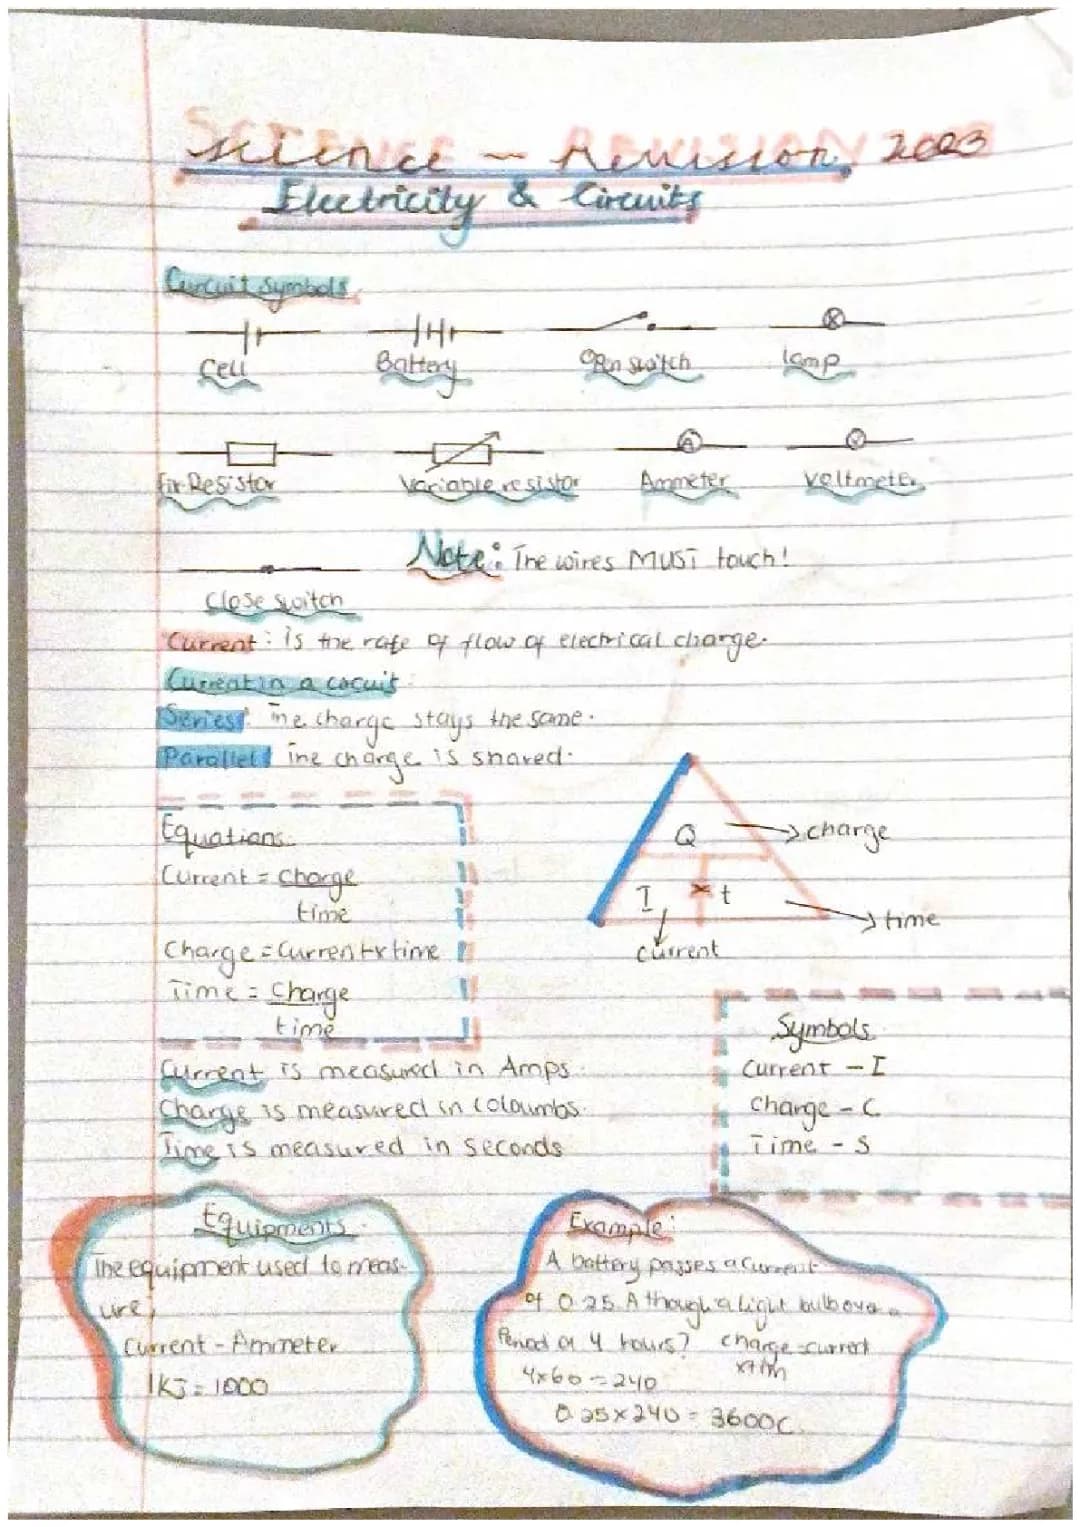 Science - Revision 2023
Electricity & Circuits
Curcuit symbols
Cell Battery Open switch lamp
A V
fix Resistor Variable resistor Ammeter Voltmeter
Note: The wires MUST touch!
Close switch
Current: is the rate of flow of electrical charge.
Current in a cocuit:
Series: The charge stays the same.
Parallel: The charge is shared.
Equations:
Current = Charge
time
Charge = Current x time
Time = Charge
time
Q → charge
I x t
→ time
current
Symbols
Current - I
Charge - C
Time - S
Current is measured in Amps.
Charge is measured in Coloumbs.
Time is measured in Seconds
Equipments
The equipment used to meas-
ure,
Current - Ammeter
1KJ = 1000
Example:
A battery passes a current
of 0.25 A though a light bulb over a
Period of 4 hours? charge = current
4x60 = 240
0.25 x 240 = 3600C.